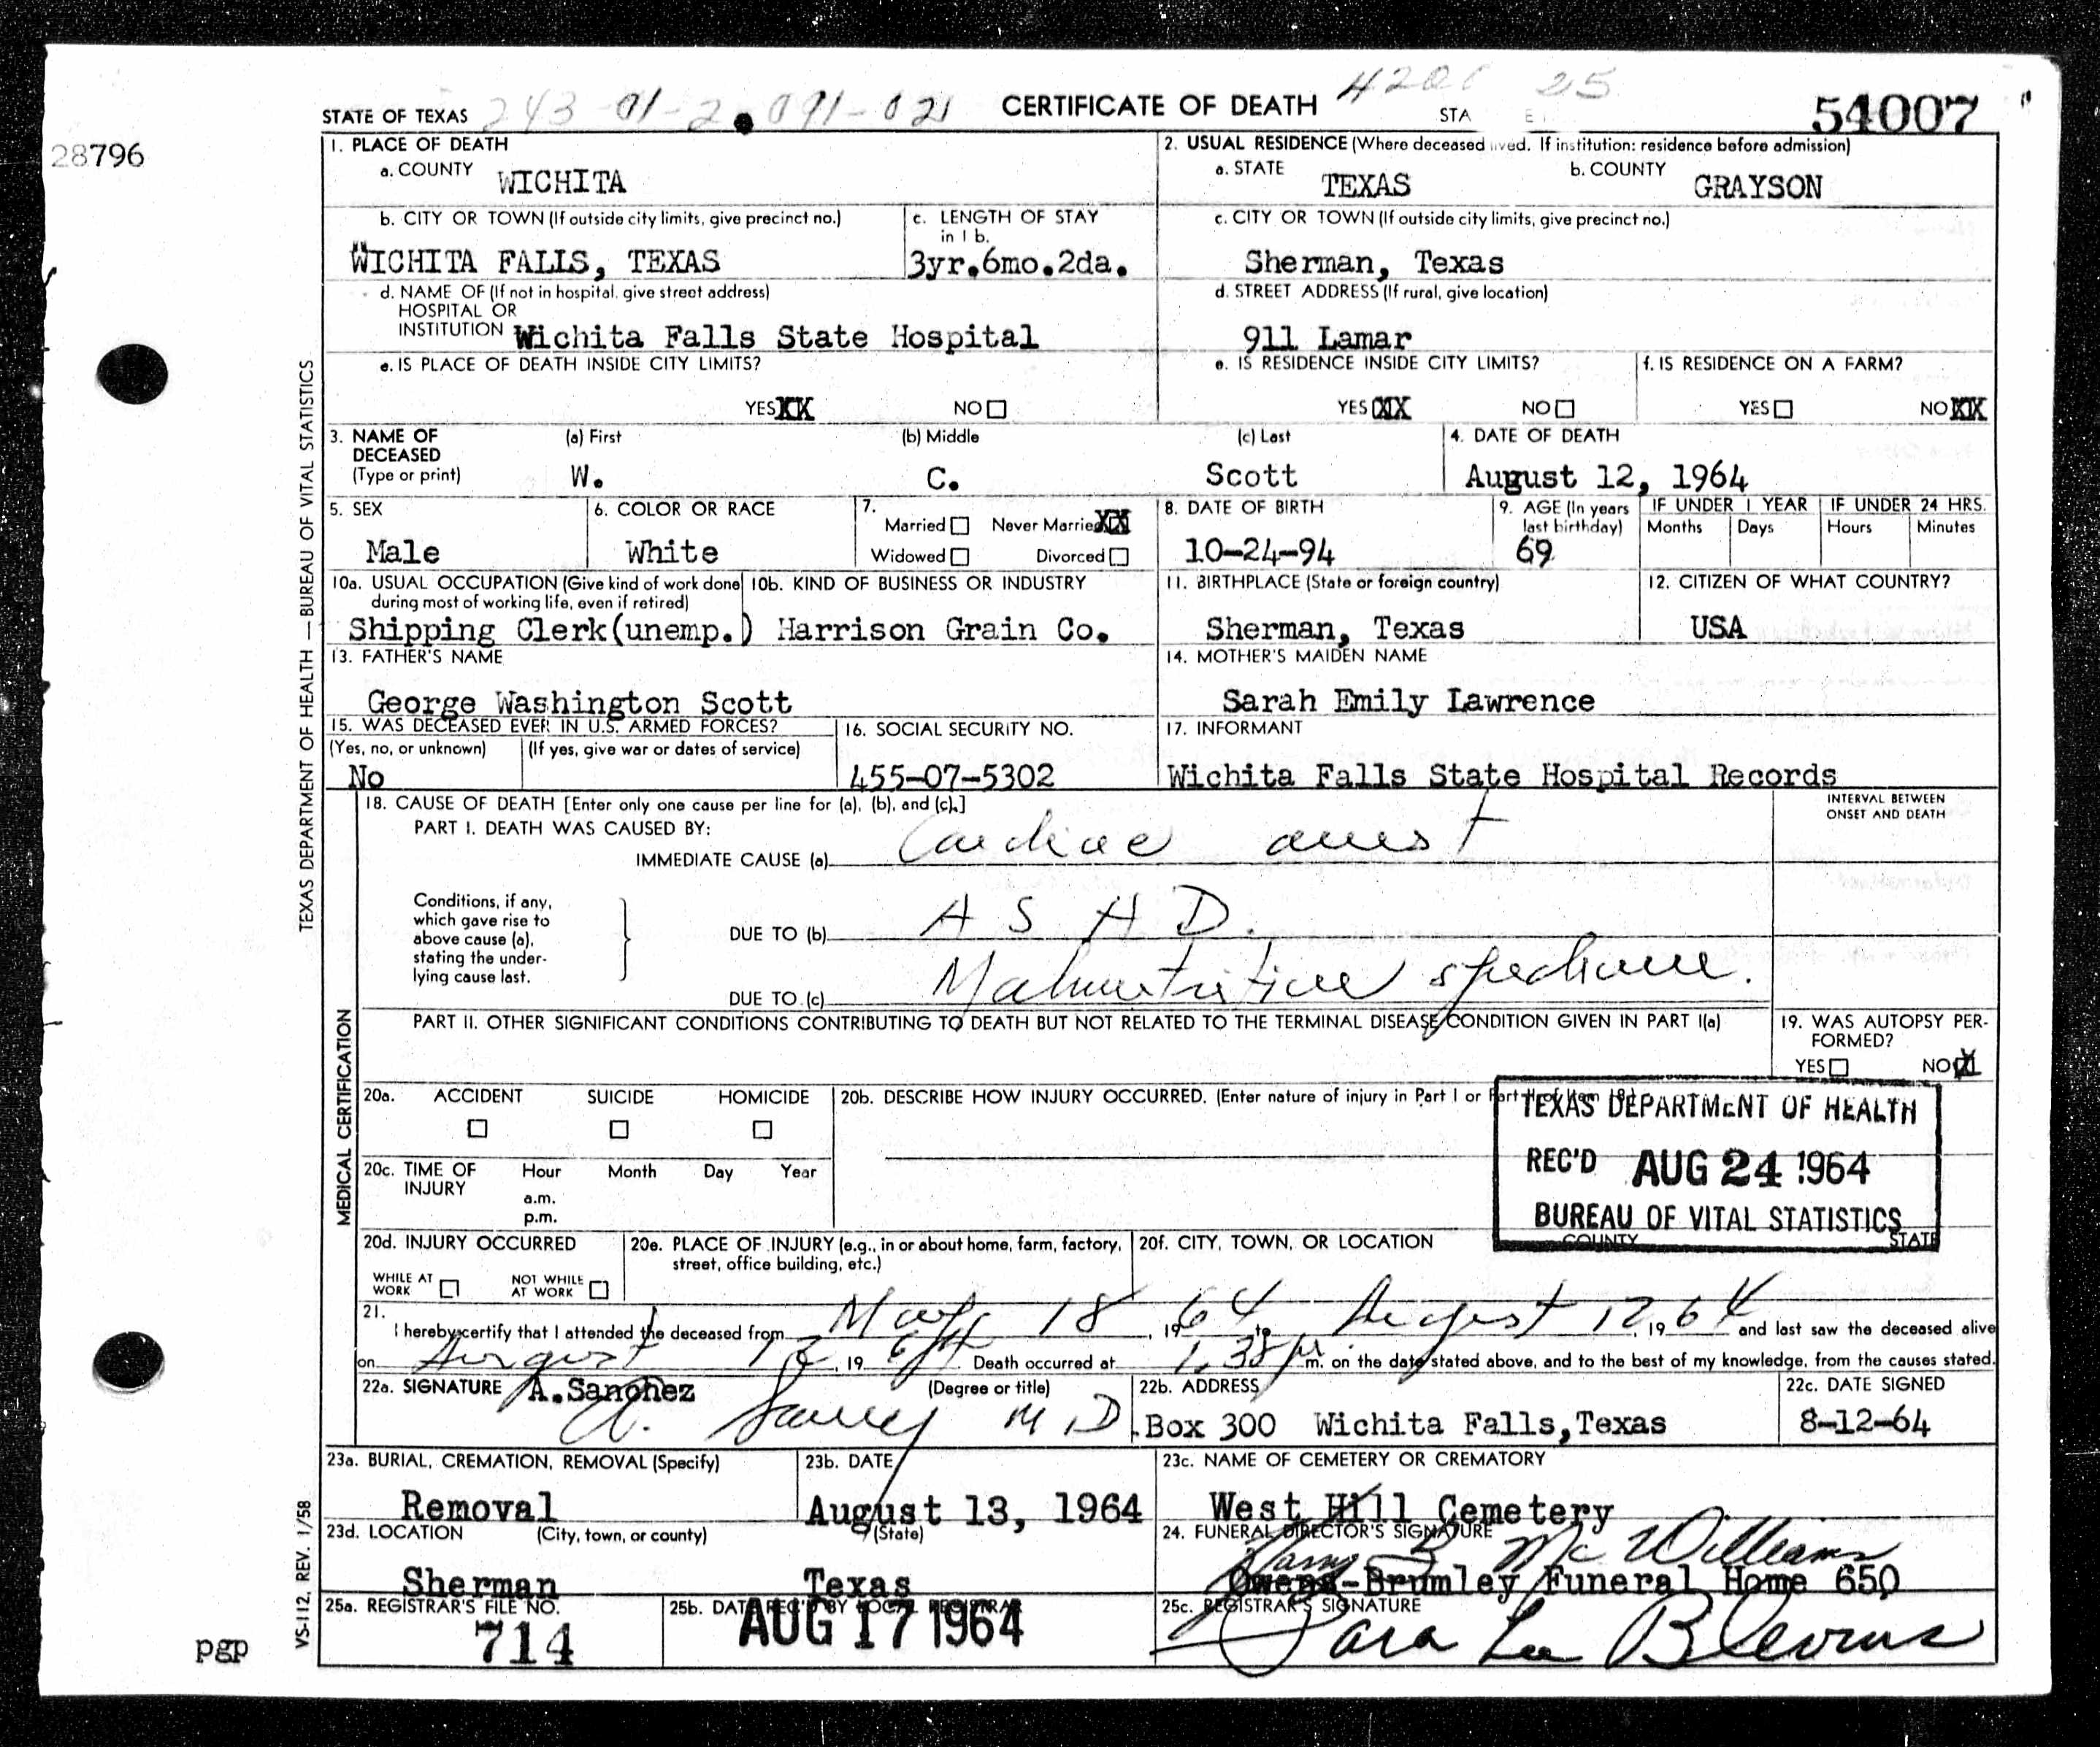 STATE OF TEXAS 243-01-2 091-021 CERTIFICATE OF DEATH 420 25 STA 54007
28796
1. PLACE OF DEATH
a. COUNTY WICHITA
2. USUAL RESIDENCE (Where deceased lived. If institution: residence before admission)
a. STATE TEXAS b. COUNTY GRAYSON
b. CITY OR TOWN (If outside city limits, give precinct no.)
WICHITA FALLS, TEXAS
c. LENGTH OF STAY in 1 b.
3yr.6mo.2da.
c. CITY OR TOWN (If outside city limits, give precinct no.)
Sherman, Texas
d. NAME OF (If not in hospital, give street address)
HOSPITAL OR
INSTITUTION Wichita Falls State Hospital
d. STREET ADDRESS (If rural, give location)
911 Lamar
e. IS PLACE OF DEATH INSIDE CITY LIMITS?
YES XX NO
e. IS RESIDENCE INSIDE CITY LIMITS?
YES XX NO
f. IS RESIDENCE ON A FARM?
YES NO XX
3. NAME OF DECEASED (Type or print)
(a) First (b) Middle (c) Last
W. C. Scott
4. DATE OF DEATH
August 12, 1964
5. SEX
Male
6. COLOR OR RACE
White
7.
Married Never Married XX
Widowed Divorced
8. DATE OF BIRTH
10-24-94
9. AGE (In years last birthday)
69
IF UNDER 1 YEAR
Months Days
IF UNDER 24 HRS.
Hours Minutes
10a. USUAL OCCUPATION (Give kind of work done during most of working life, even if retired)
Shipping Clerk(unemp.)
10b. KIND OF BUSINESS OR INDUSTRY
Harrison Grain Co.
11. BIRTHPLACE (State or foreign country)
Sherman, Texas
12. CITIZEN OF WHAT COUNTRY?
USA
13. FATHER'S NAME
George Washington Scott
14. MOTHER'S MAIDEN NAME
Sarah Emily Lawrence
15. WAS DECEASED EVER IN U.S. ARMED FORCES?
(Yes, no, or unknown) (If yes, give war or dates of service)
No
16. SOCIAL SECURITY NO.
455-07-5302
17. INFORMANT
Wichita Falls State Hospital Records
18. CAUSE OF DEATH [Enter only one cause per line for (a), (b), and (c).]
PART I. DEATH WAS CAUSED BY:
IMMEDIATE CAUSE (a) Cardiac arrest
INTERVAL BETWEEN
ONSET AND DEATH
Conditions, if any,
which gave rise to
above cause (a),
stating the under-
lying cause last.
DUE TO (b) A S H D.
DUE TO (c) Malnutrition
PART II. OTHER SIGNIFICANT CONDITIONS CONTRIBUTING TO DEATH BUT NOT RELATED TO THE TERMINAL DISEASE CONDITION GIVEN IN PART I(a)
19. WAS AUTOPSY PER-
FORMED?
YES NO X
20a. ACCIDENT SUICIDE HOMICIDE
20b. DESCRIBE HOW INJURY OCCURRED. (Enter nature of injury in Part I or Part II of item 18.)
TEXAS DEPARTMENT OF HEALTH
REC'D AUG 24 1964
BUREAU OF VITAL STATISTICS
20c. TIME OF INJURY
Hour Month Day Year
a.m.
p.m.
20d. INJURY OCCURRED
WHILE AT WORK NOT WHILE AT WORK
20e. PLACE OF INJURY (e.g., in or about home, farm, factory, street, office building, etc.)
20f. CITY, TOWN, OR LOCATION COUNTY STATE
21.
I hereby certify that I attended the deceased from May 18, 1964 to August 12, 1964 and last saw the deceased alive
on August 12, 1964. Death occurred at 1:38 p.m. on the date stated above, and to the best of my knowledge, from the causes stated.
22a. SIGNATURE A. Sanchez (Degree or title)
A. Sanchez M D
22b. ADDRESS
Box 300 Wichita Falls, Texas
22c. DATE SIGNED
8-12-64
23a. BURIAL, CREMATION, REMOVAL (Specify)
Removal
23b. DATE
August 13, 1964
23c. NAME OF CEMETERY OR CREMATORY
West Hill Cemetery
23d. LOCATION (City, town, or county) (State)
Sherman Texas
24. FUNERAL DIRECTOR'S SIGNATURE
McWilliams
Owens-Brumley Funeral Home 650
25a. REGISTRAR'S FILE NO.
714
25b. DATE REC'D BY LOCAL REGISTRAR
AUG 17 1964
25c. REGISTRAR'S SIGNATURE
Sara Lee Blevins
TEXAS DEPARTMENT OF HEALTH—BUREAU OF VITAL STATISTICS
MEDICAL CERTIFICATION
VS-112, REV. 1/58
pgp